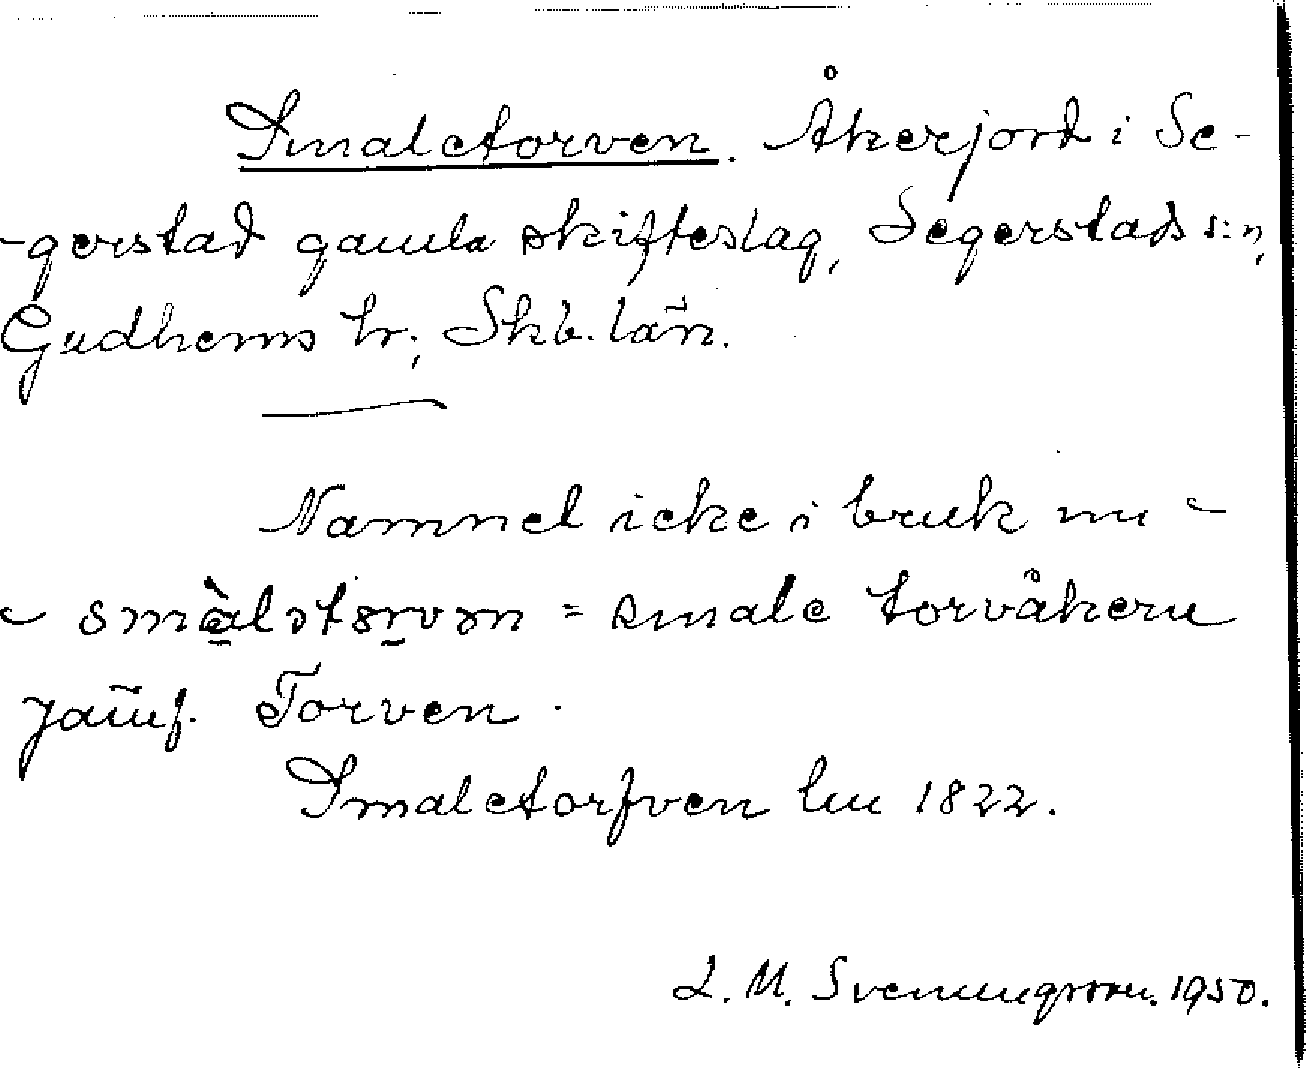 Smaletorven. Åkerjord i Se-
-gerstad gamla skifteslag, Segerstads s:n,
Gudhems hr; Skb. län.
Namnet icke i bruk nu -
= smale torvåkern
jämf. Torven.
Smaletorfven lm 1822.
L. M. Svenungsson. 1950.